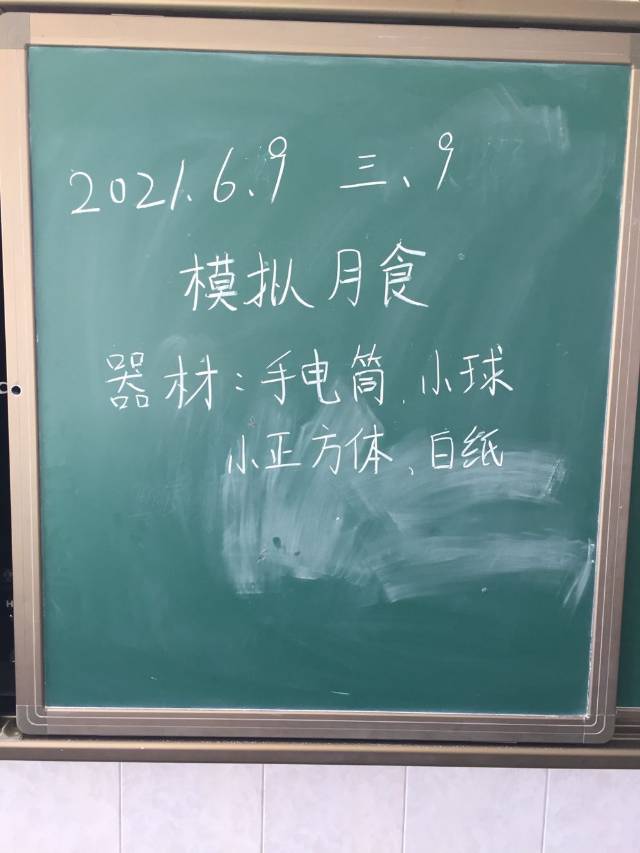 2021.6.9 三、9
模拟月食
器材:手电筒、小球
小正方体、白纸